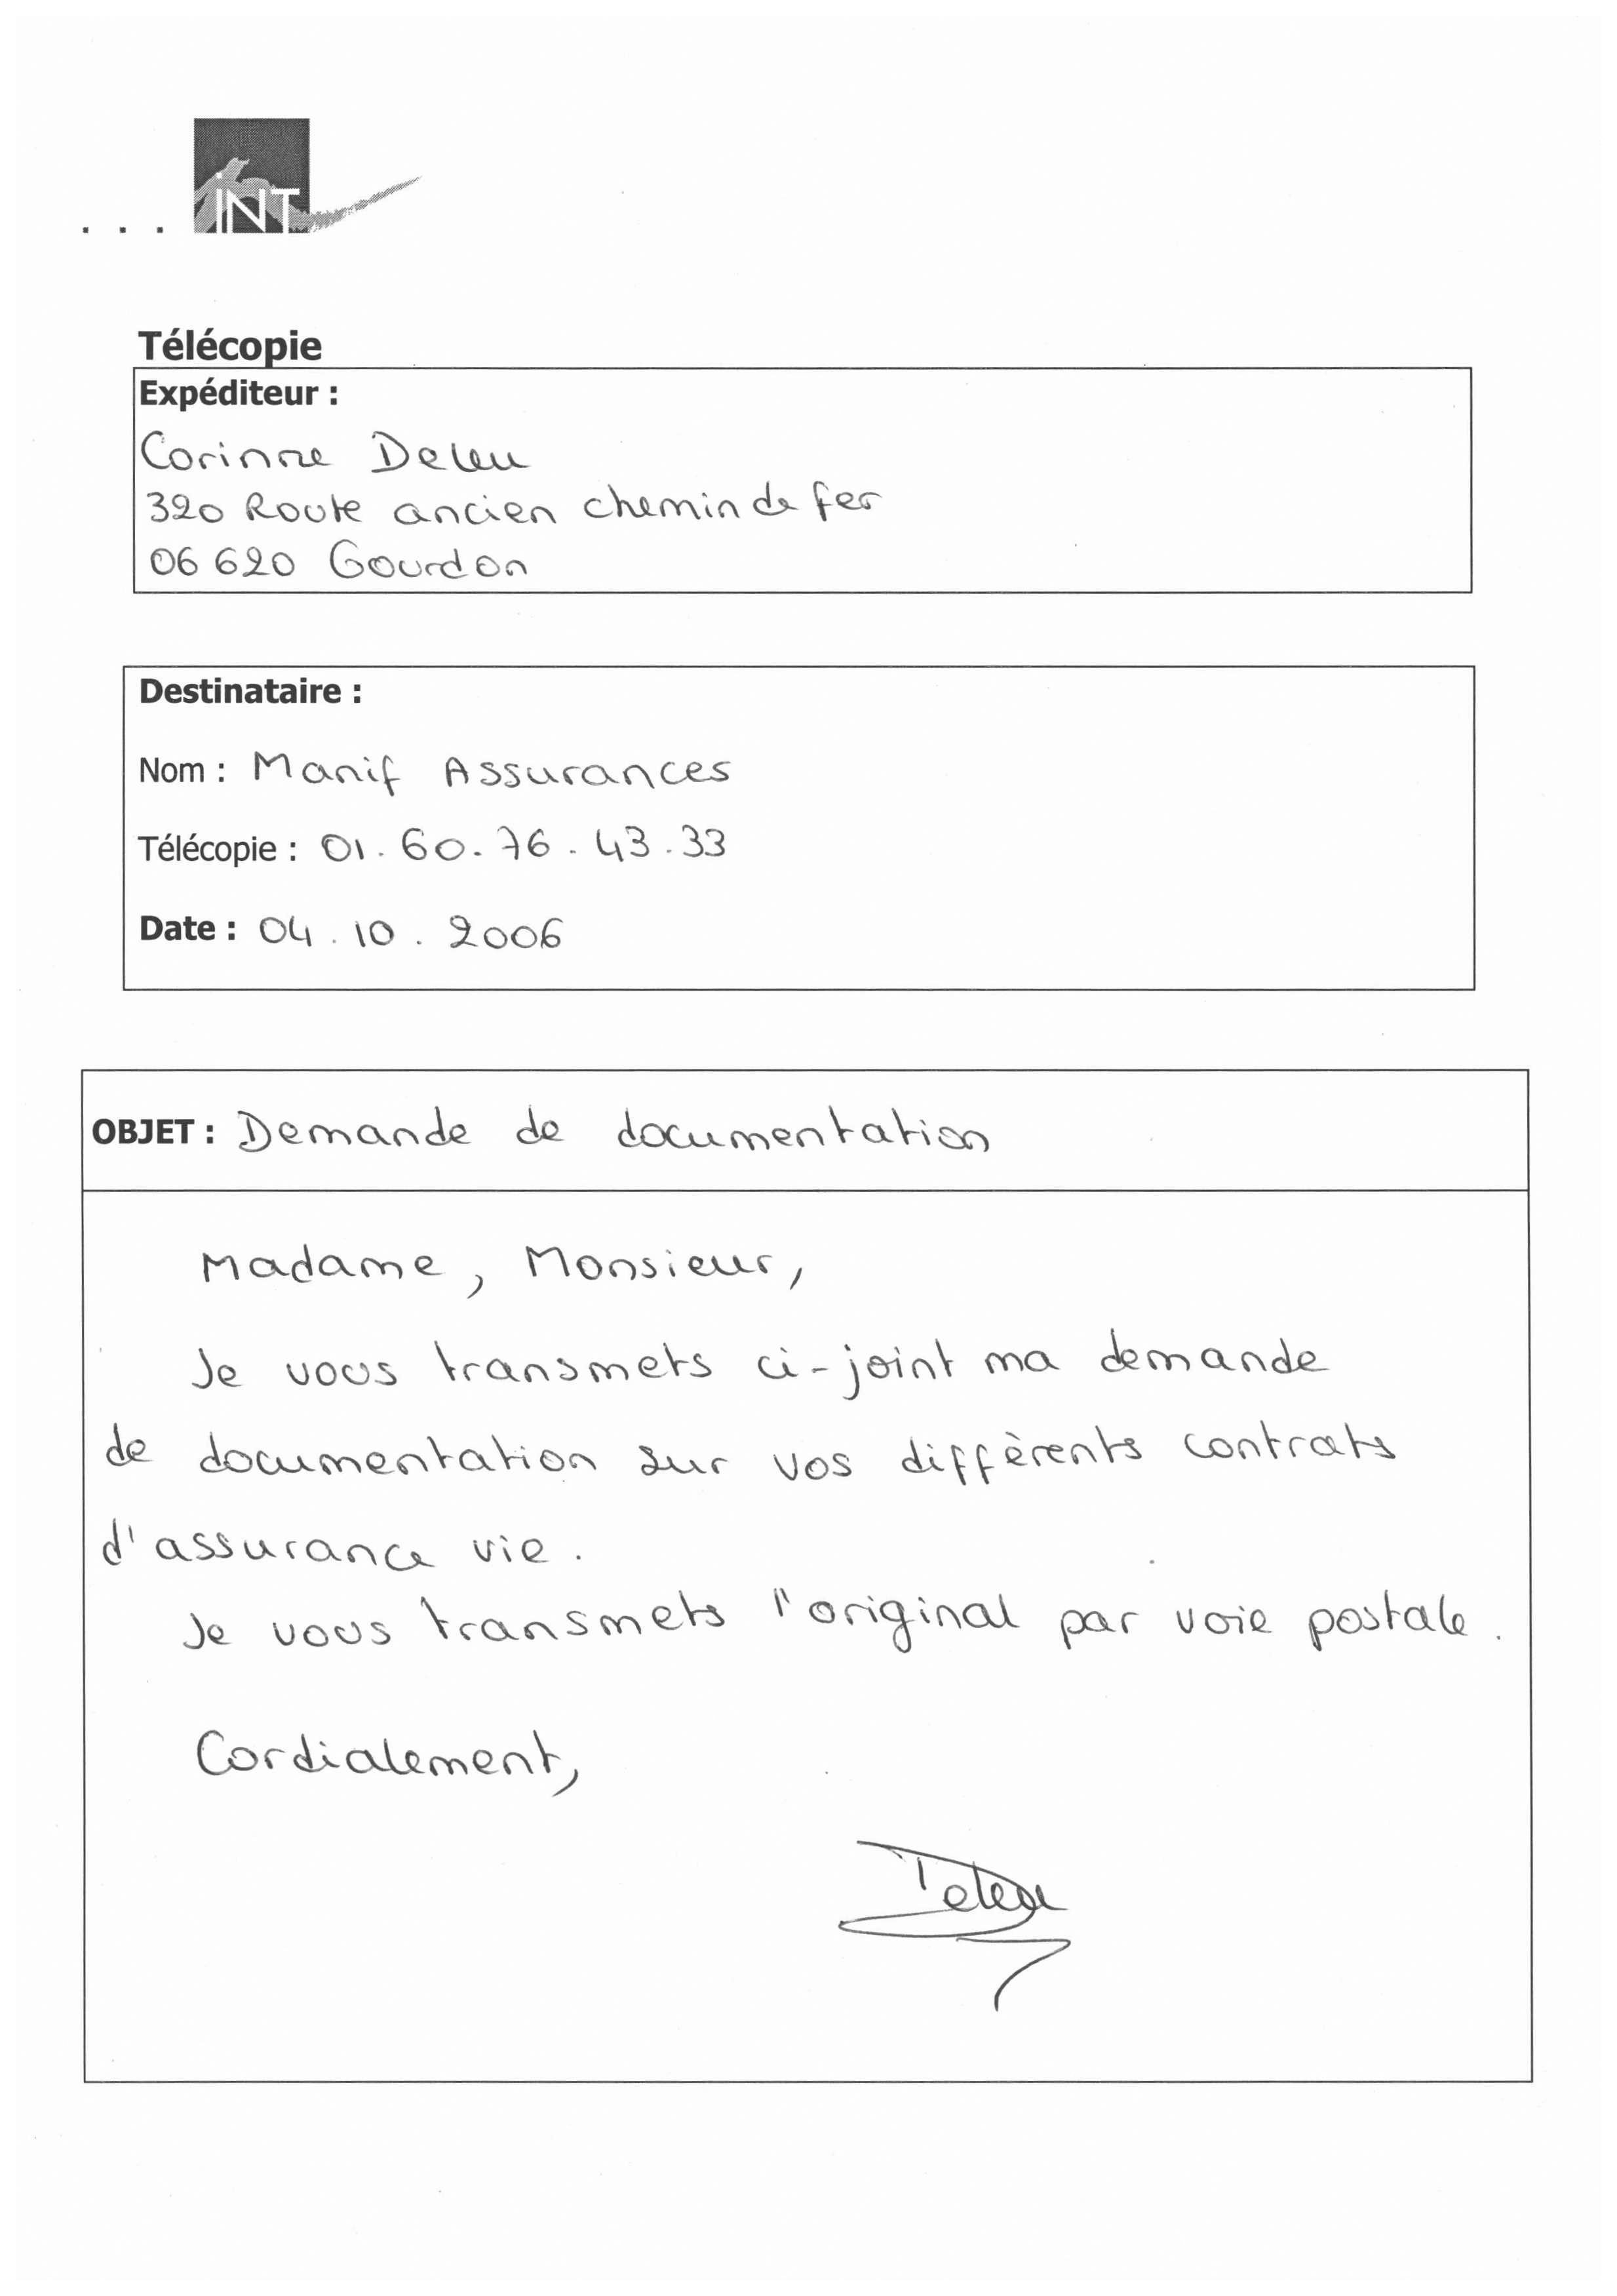 ... INT
Télécopie
Expéditeur :
Corinne Deleu
320 Route ancien chemin de fer
06 620 Gourdon
Destinataire :
Nom : Manif Assurances
Télécopie : 01.60.76.43.33
Date : 04.10.2006
OBJET : Demande de documentation
Madame, Monsieur,
Je vous transmets ci-joint ma demande
de documentation sur vos différents contrats
d'assurance vie.
Je vous transmets l'original par voie postale.
Cordialement,
Deleu